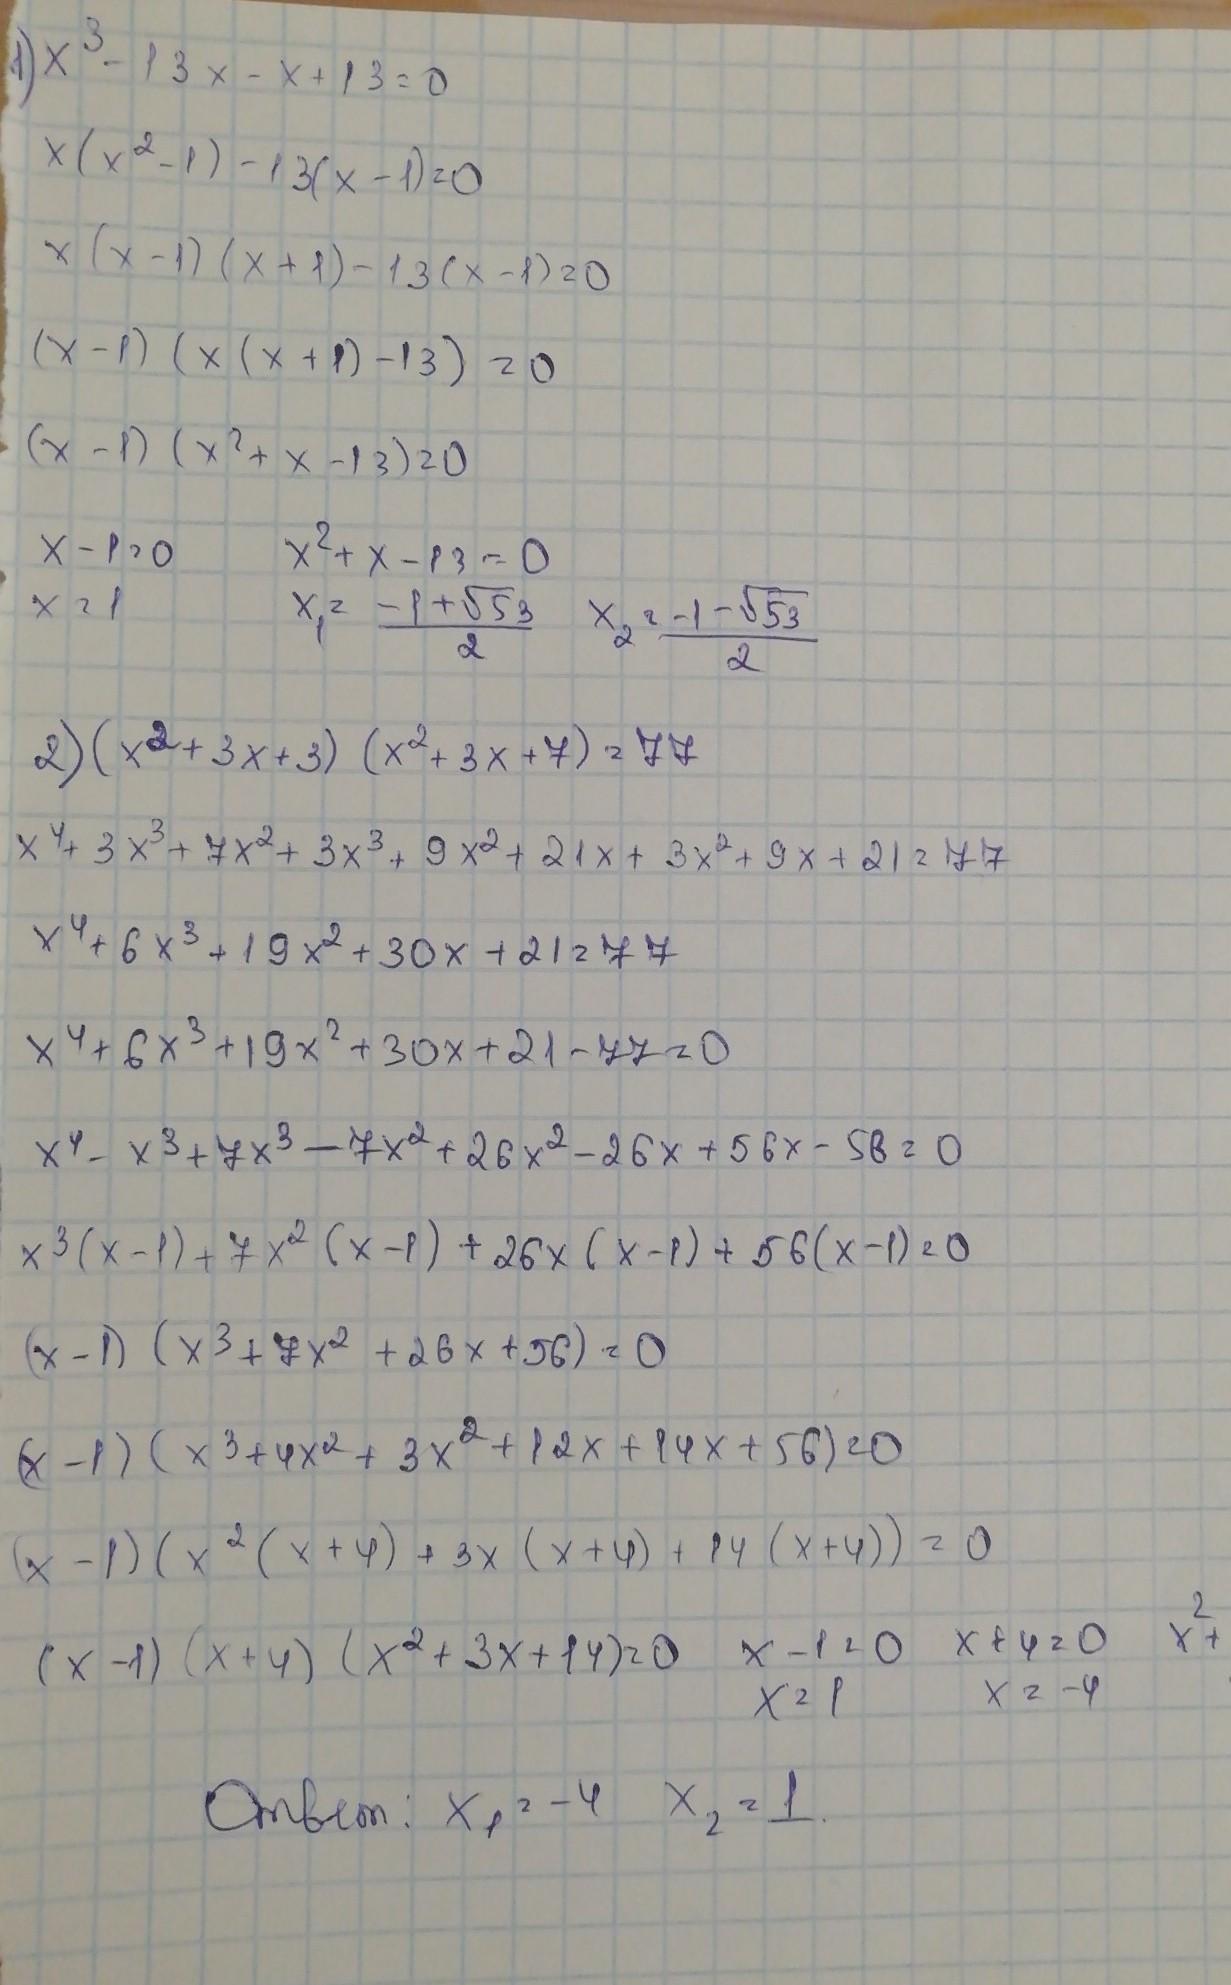 1) x³ - 13x - x + 13 = 0
x(x² - 1) - 13(x - 1) = 0
x(x - 1)(x + 1) - 13(x - 1) = 0
(x - 1)(x(x + 1) - 13) = 0
(x - 1)(x² + x - 13) = 0
x - 1 = 0   x² + x - 13 = 0
x = 1   x₁ = (-1 + √53)/2   x₂ = (-1 - √53)/2
2) (x² + 3x + 3)(x² + 3x + 7) = 77
x⁴ + 3x³ + 7x² + 3x³ + 9x² + 21x + 3x² + 9x + 21 = 77
x⁴ + 6x³ + 19x² + 30x + 21 = 77
x⁴ + 6x³ + 19x² + 30x + 21 - 77 = 0
x⁴ - x³ + 7x³ - 7x² + 26x² - 26x + 56x - 56 = 0
x³(x - 1) + 7x²(x - 1) + 26x(x - 1) + 56(x - 1) = 0
(x - 1)(x³ + 7x² + 26x + 56) = 0
(x - 1)(x³ + 4x² + 3x² + 12x + 14x + 56) = 0
(x - 1)(x²(x + 4) + 3x(x + 4) + 14(x + 4)) = 0
(x - 1)(x + 4)(x² + 3x + 14) = 0   x - 1 = 0   x + 4 = 0   x² +
x = 1   x = -4
Ответ: x₁ = -4   x₂ = 1.